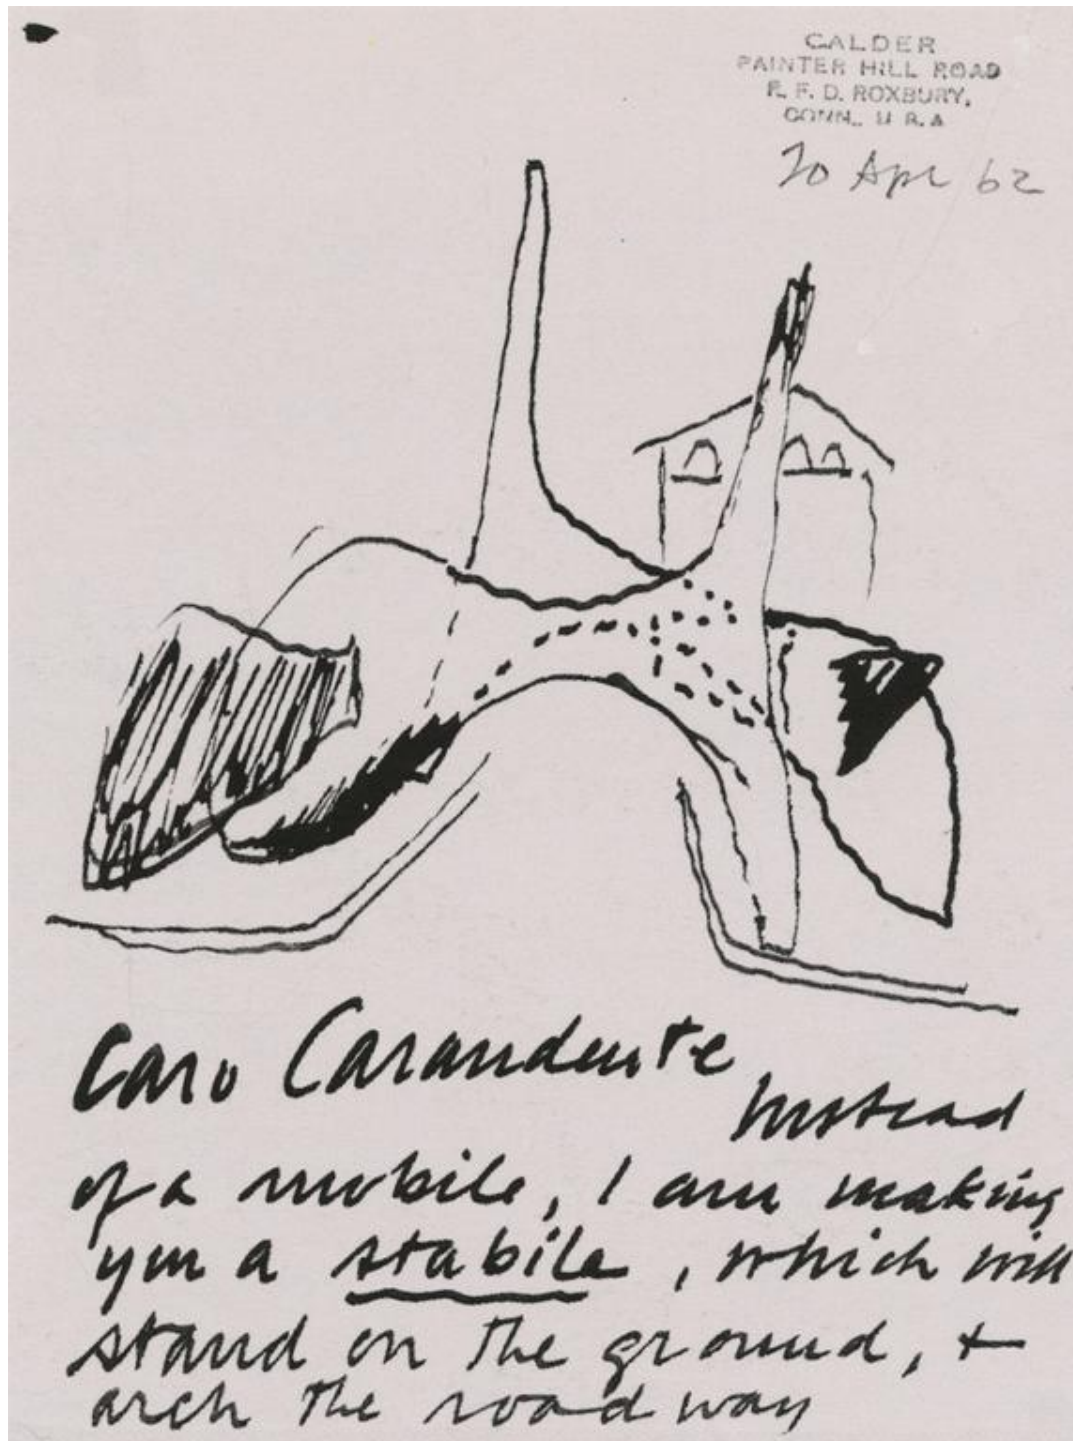 CALDER
PAINTER HILL ROAD
R. F. D. ROXBURY,
CONN., U S A
20 Apr 62
Caro Carandente
Instead
of a mobile, I am making
you a stabile, which will
stand on the ground, +
arch the roadway